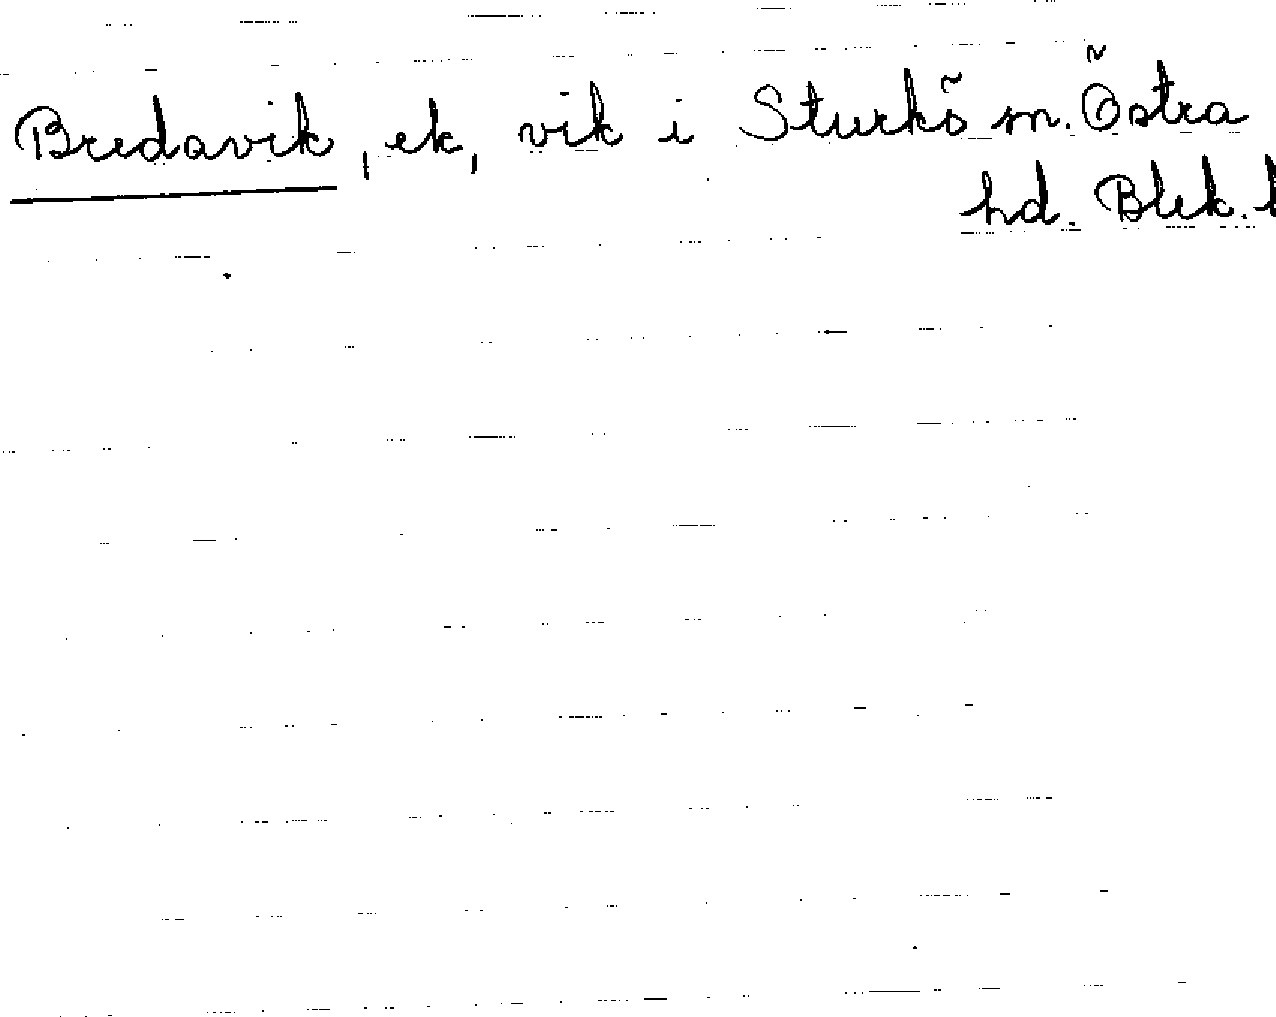 Bredavik, ek, vik i Sturkö sn. Östra
hd. Blek. l